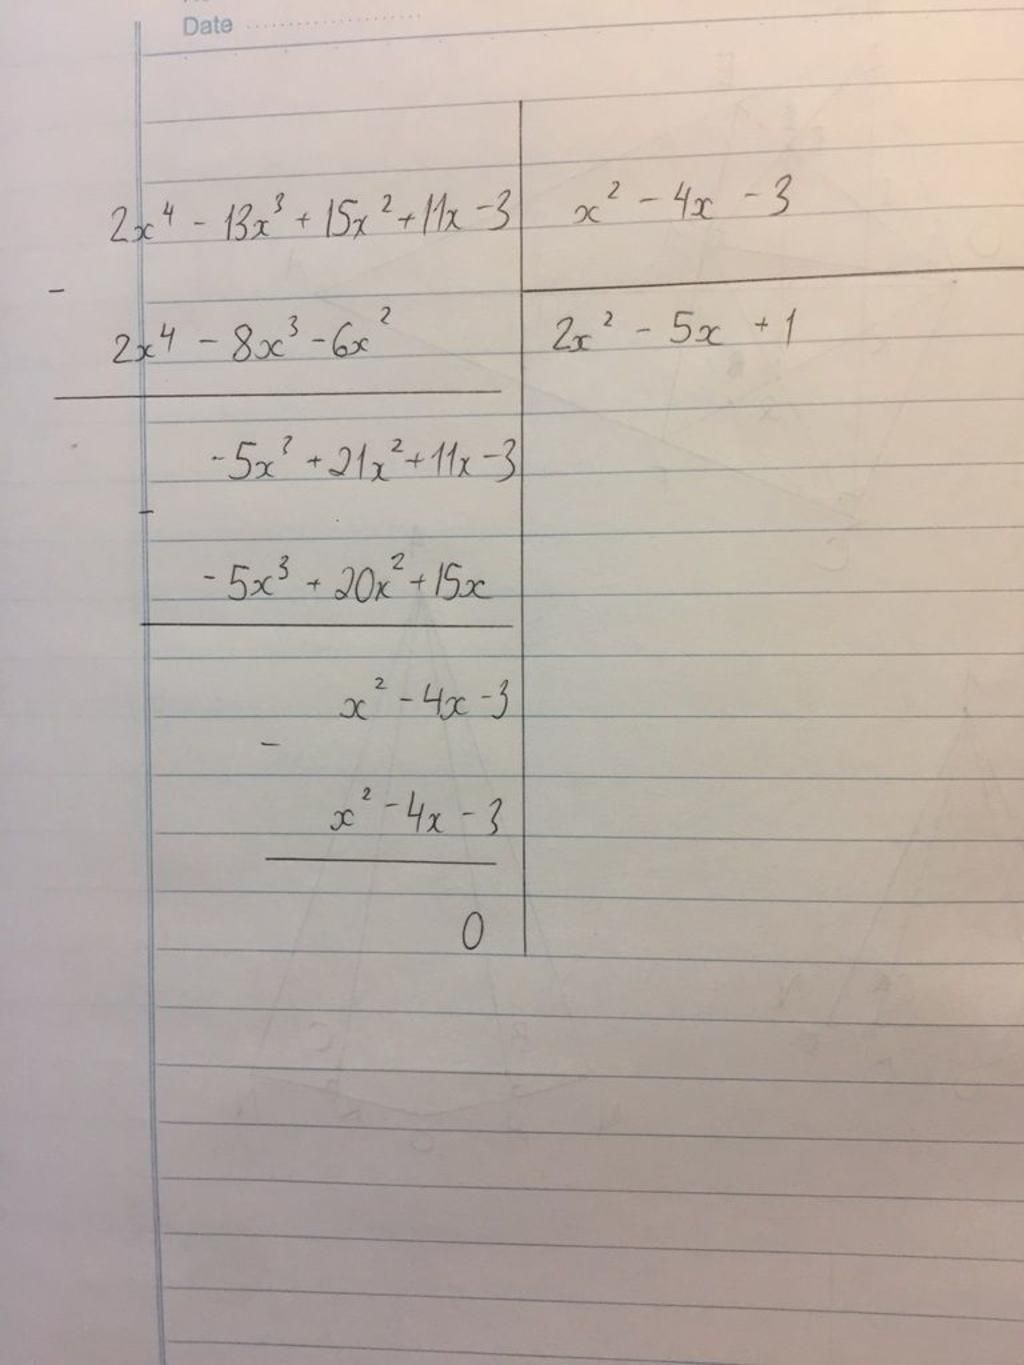 Date
2x⁴ - 13x³ + 15x² + 11x - 3 x² - 4x - 3
-
2x⁴ - 8x³ - 6x² 2x² - 5x + 1
-5x³ + 21x² + 11x - 3
-
-5x³ + 20x² + 15x
x² - 4x - 3
-
x² - 4x - 3
0